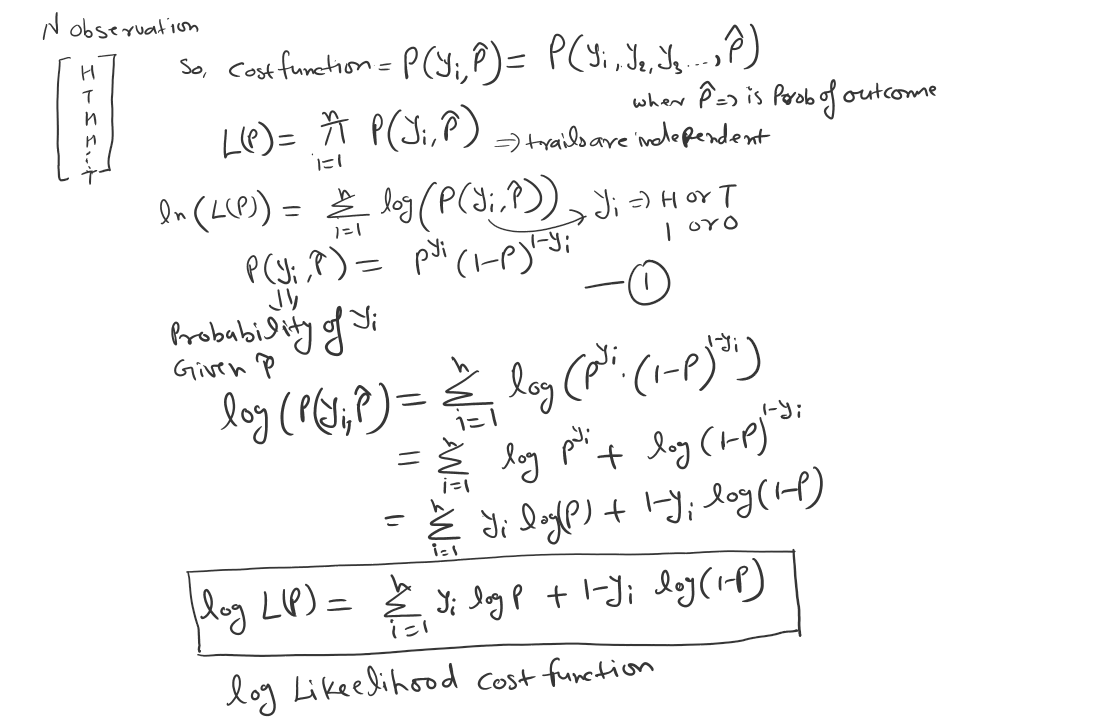 N observation
H
T
H
H
⋮
T
So, Cost function = P(yi, p̂) = P(yi, y2, y3 ..., p̂)
when p̂ => is Prob of outcome
L(P) = n π i=1 P(yi, p̂) => trails are independent
ln(L(P)) = n Σ i=1 log(P(yi, p̂)) → yi => H or T
1 or 0
P(yi, p̂) = P^yi (1-P)^1-yi — ①
⇓
Probability of yi
Given p̂
log(P(yi, p̂) = n Σ i=1 log(P^yi · (1-P)^1-yi)
= n Σ i=1 log P^yi + log (1-P)^1-yi
= n Σ i=1 yi log(P) + 1-yi log(1-P)
log L(P) = n Σ i=1 yi log P + 1-yi log(1-P)
log Likeelihood cost function